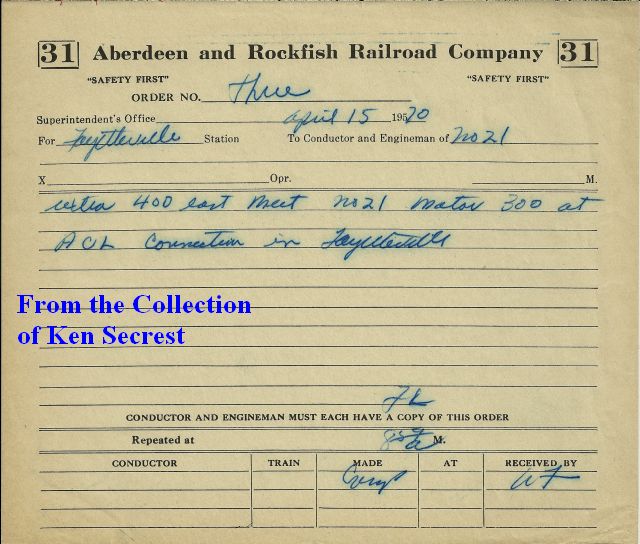 31 Aberdeen and Rockfish Railroad Company 31
"SAFETY FIRST" "SAFETY FIRST"
ORDER NO. three
Superintendent's Office april 15 1950
For Fayetteville Station To Conductor and Engineman of no21
X Opr. M.
extra 400 east meet no21 motor 300 at
ACL Connection in Fayetteville
From the Collection
of Ken Secrest
CONDUCTOR AND ENGINEMAN MUST EACH HAVE A COPY OF THIS ORDER
Repeated at M.
CONDUCTOR TRAIN MADE AT RECEIVED BY
Comp